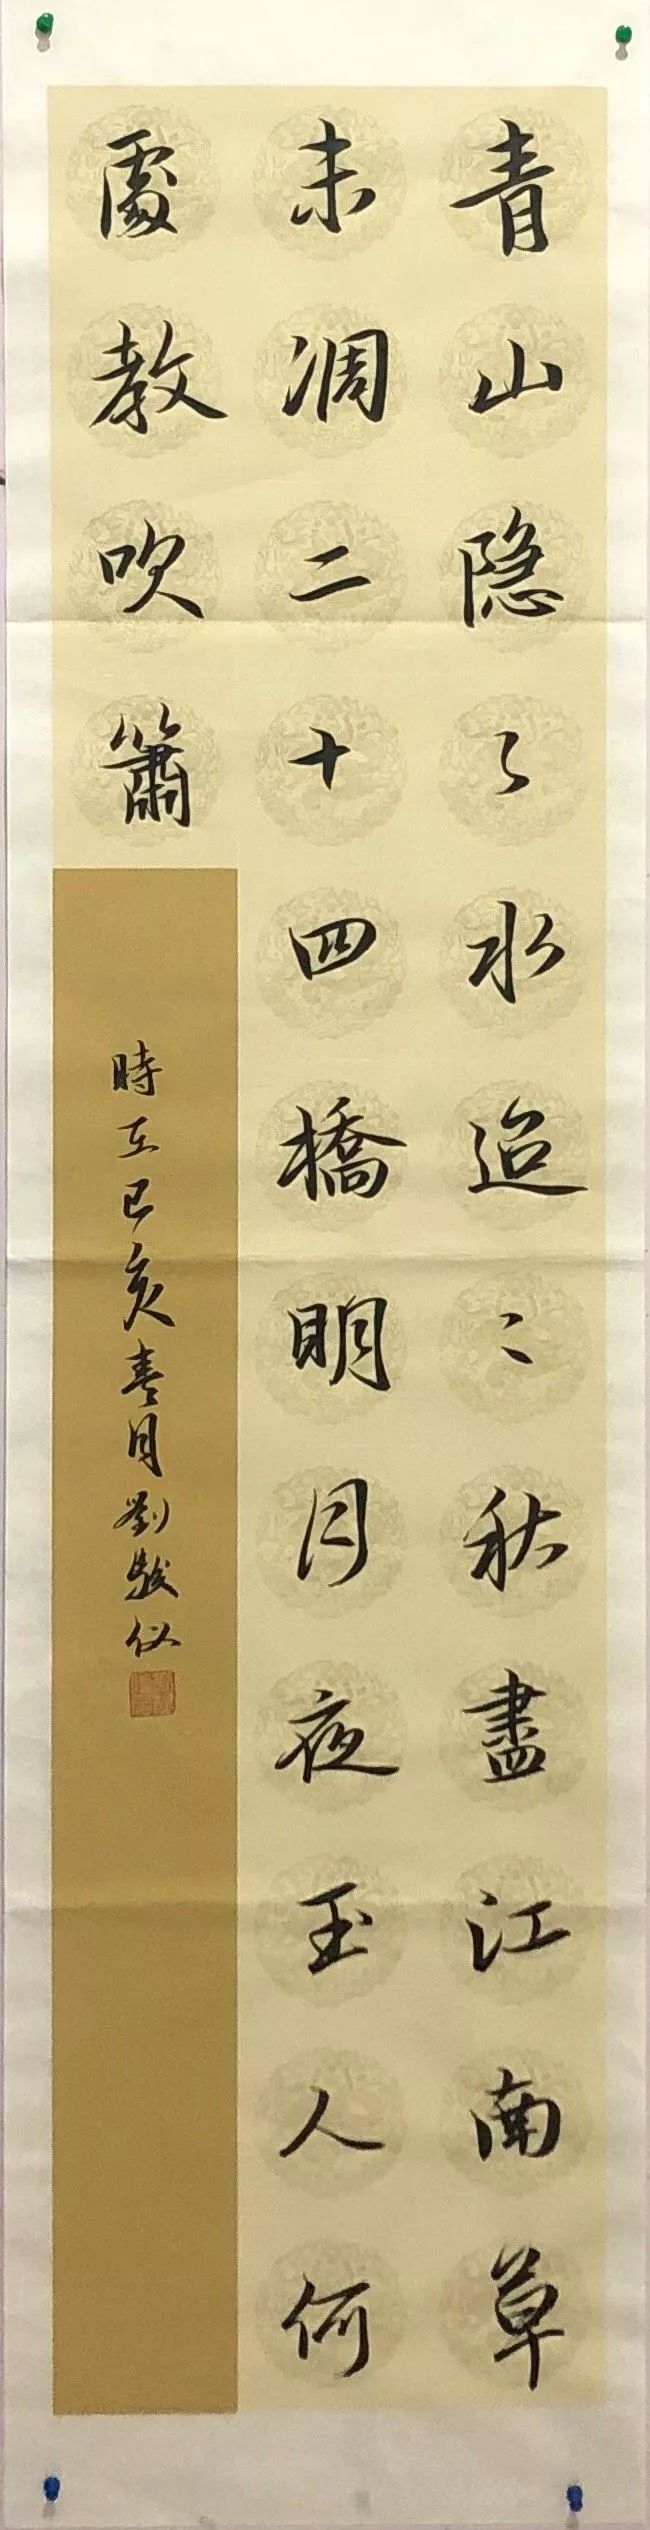 青山隐〻水迢〻秋盡江南草
未凋二十四橋明月夜玉人何
處教吹簫
時在己亥春月劉駿仪